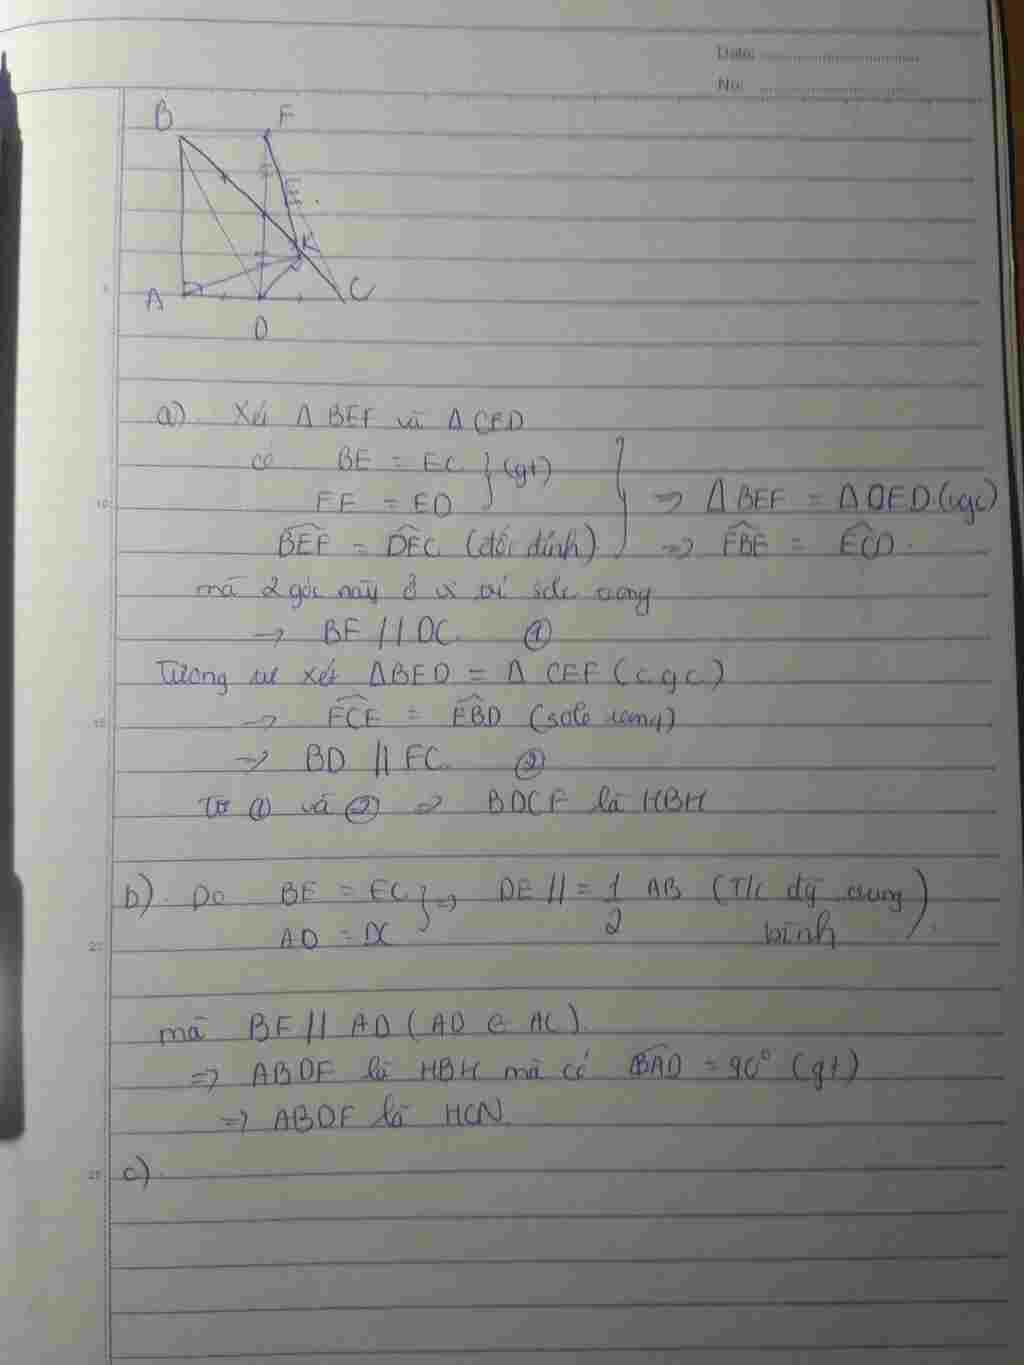 Date:
No:
B F
E
K
A C
D
a) Xét Δ BEF và Δ CED
có BE = EC } (gt)
FE = ED } ⇒ Δ BEF = Δ DEC (cgc)
BEF = DEC (đối đỉnh) ⇒ FBE = ECD.
mà 2 góc này ở vị trí sole trong
→ BF // DC ①
Tương tự xét ΔBED = Δ CEF (c.g.c)
→ FCE = EBD (sole trong)
→ BD // FC ②
Từ ① và ② ⇒ BDCF là HBH
b). Do BE = EC } ⇒ DE // = 1/2 AB (T/c đg trung bình)
AD = DC
mà BF // AD (AD ∈ AC).
⇒ ABDF là HBH mà có BAD = 90° (gt)
⇒ ABDF là HCN.
c)